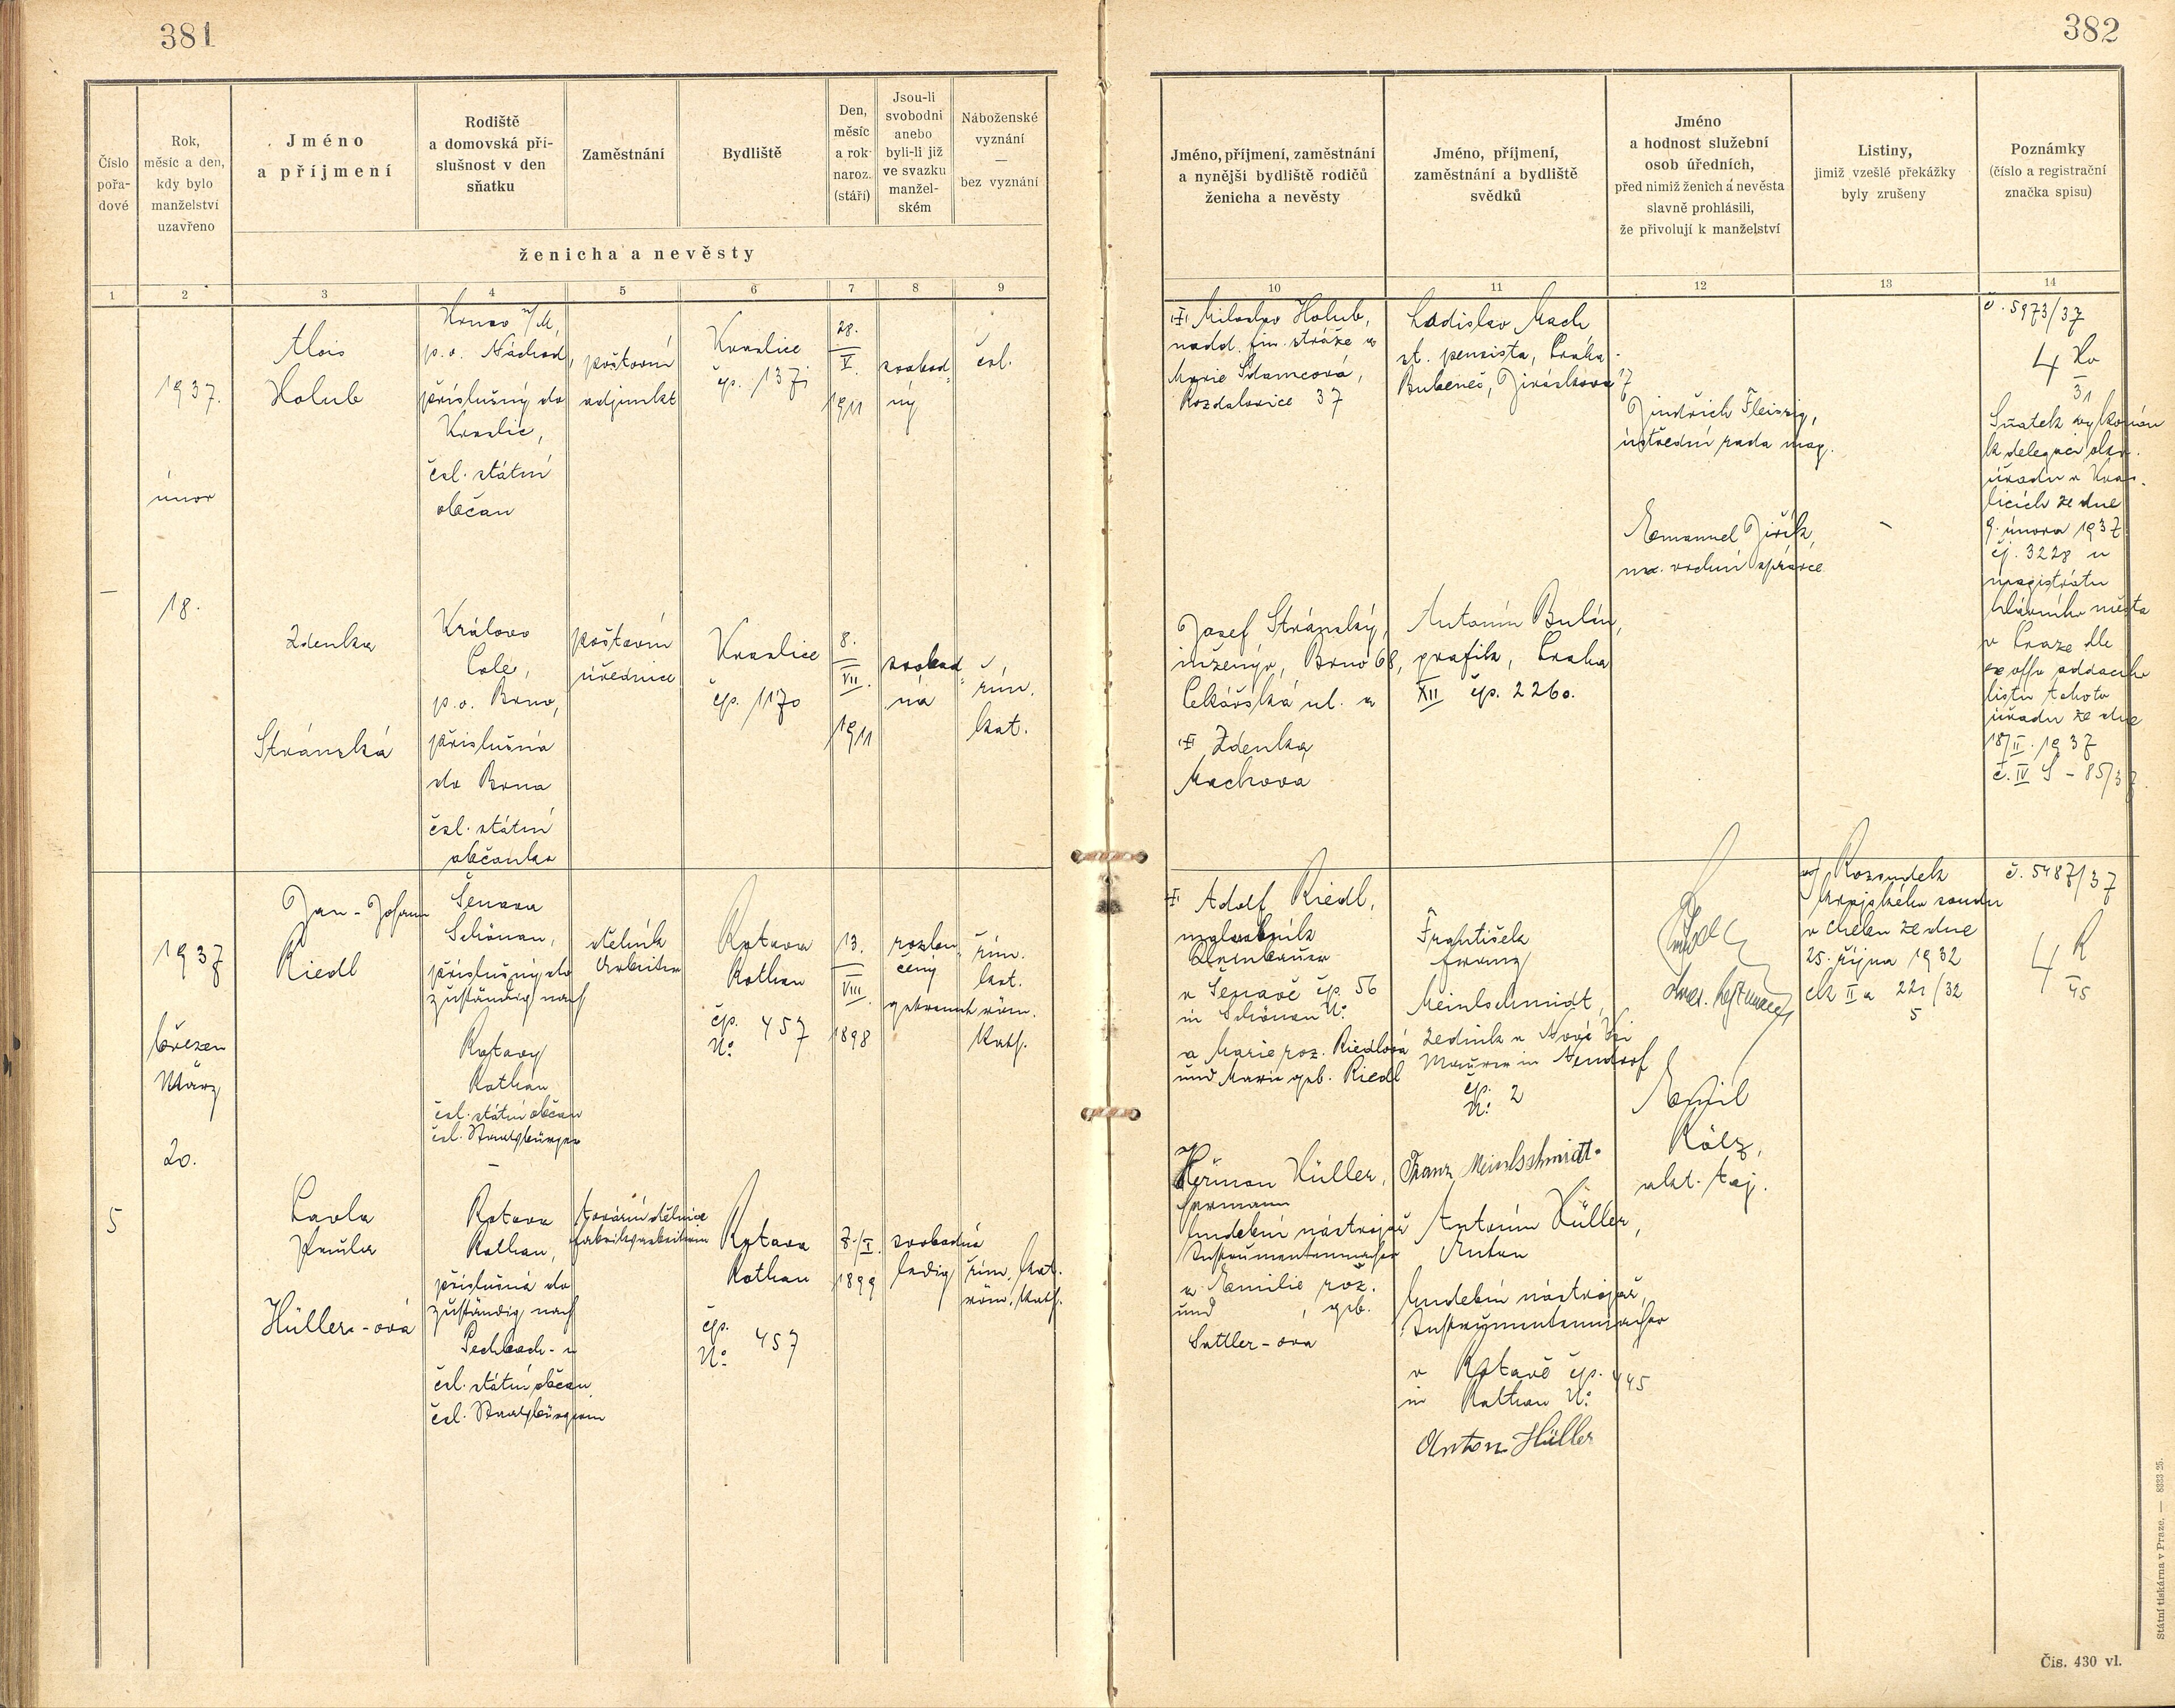 381
382
Číslo
pořa-
dové
Rok,
měsíc a den,
kdy bylo
manželství
uzavřeno
Jméno
a příjmení
Rodiště
a domovská pří-
slušnost v den
sňatku
Zaměstnání
Bydliště
Den,
měsíc
a rok
naroz.
(stáří)
Jsou-li
svobodni
anebo
byli-li již
ve svazku
manžel-
ském
Náboženské
vyznání
—
bez vyznání
ženicha a nevěsty
Jméno, příjmení, zaměstnání
a nynější bydliště rodičů
ženicha a nevěsty
Jméno, příjmení,
zaměstnání a bydliště
svědků
Jméno
a hodnost služební
osob úředních,
před nimiž ženich a nevěsta
slavně prohlásili,
že přivolují k manželství
Listiny,
jimiž vzešlé překážky
byly zrušeny
Poznámky
(číslo a registrační
značka spisu)
1 2 3 4 5 6 7 8 9
10 11 12 13 14
—
1937.
únor
18.
Alois
Holub
Hronov n/M,
p.o. Náchod,
příslušný do
Kraslic,
čsl. státní
občan
poštovní
adjunkt
Kraslice
čp. 137
28.
V.
1911
svobod
ný
čsl.
Zdenka
Stránská
Králove
Pole,
p.o. Brno,
příslušná
do Brna
čsl. státní
občanka
poštovní
úřednice
Kraslice
čp. 1170
8.
VII.
1911
svobod
ná
řím.
kat.
Miloslav Holub,
nadd. fin. stráže a
Marie Adamcová,
Rozdalovice 37
Josef Stránský,
inženýr, Brno 68,
Pekařská ul. a
Zdenka
Machova
Ladislav Mach
st. pensista, Praha
Bubeneč, Jiráskova 17
Antonín Bulín,
grafik, Praha
XII čp. 2260.
Jindřich Fleissig,
ústřední rada mag.
Emanuel Jiřík,
vrchní správce
—
č. 5973/37
4 Ho
31
Sňatek vykonán
k delegaci okr.
úřadu v Kras-
licích ze dne
9. února 1937
čj. 3228 u
magistrátu
hlavního města
v Praze dle
ex offo oddacího
listu tohoto
úřadu ze dne
18/II. 1937
č. IV S - 85/37
5
1937
březen
März
20.
Jan - Johann
Riedl
Šenava
Schönau,
příslušný do
zuständig nach
Rotavy
Rothau
čsl. státní občan
čsl. Staatsbürger
dělník
Arbeiter
Rotava
Rothau
čp. 457
No
13.
VIII.
1898
rozlou
čený
getrennt
řím.
kat.
röm.
kath.
Pavla
Paula
Hüller-ová
Rotava
Rothau,
příslušná do
zuständig nach
Pechbach-u
čsl. státní občan
čsl. Staatsbürgerin
tovární dělnice
Fabriksarbeiterin
Rotava
Rothau
čp. 457
No
7./I.
1899
svobodná
ledig
řím. kat.
röm. kath.
Adolf Riedl,
v Šenavě čp. 56
in Schönau No
a Marie roz. Riedlová
und Marie geb. Riedl
Heřman Hüller,
Hermann
hudební nástrojař
Instrumentenmacher
a Emilie roz.
und , geb.
Sattler-ova
František
Franz
Meinlschmidt,
zedník v Nové Vsi
Maurer in Neudorf
čp. 2
No
Franz Meinlschmidt.
Antonín Hüller,
Anton
hudební nástrojař,
Instrumentenmacher
v Rotavě čp. 445
in Rothau No
Anton Hüller
Emil
Kölz,
akt. taj.
Rozsudek
krajského soudu
v Chebu ze dne
25. října 1932
Ck II a 221/32
5
č. 5487/37
4 R
45
Státní tiskárna v Praze. — 8333-25.
Čís. 430 vl.